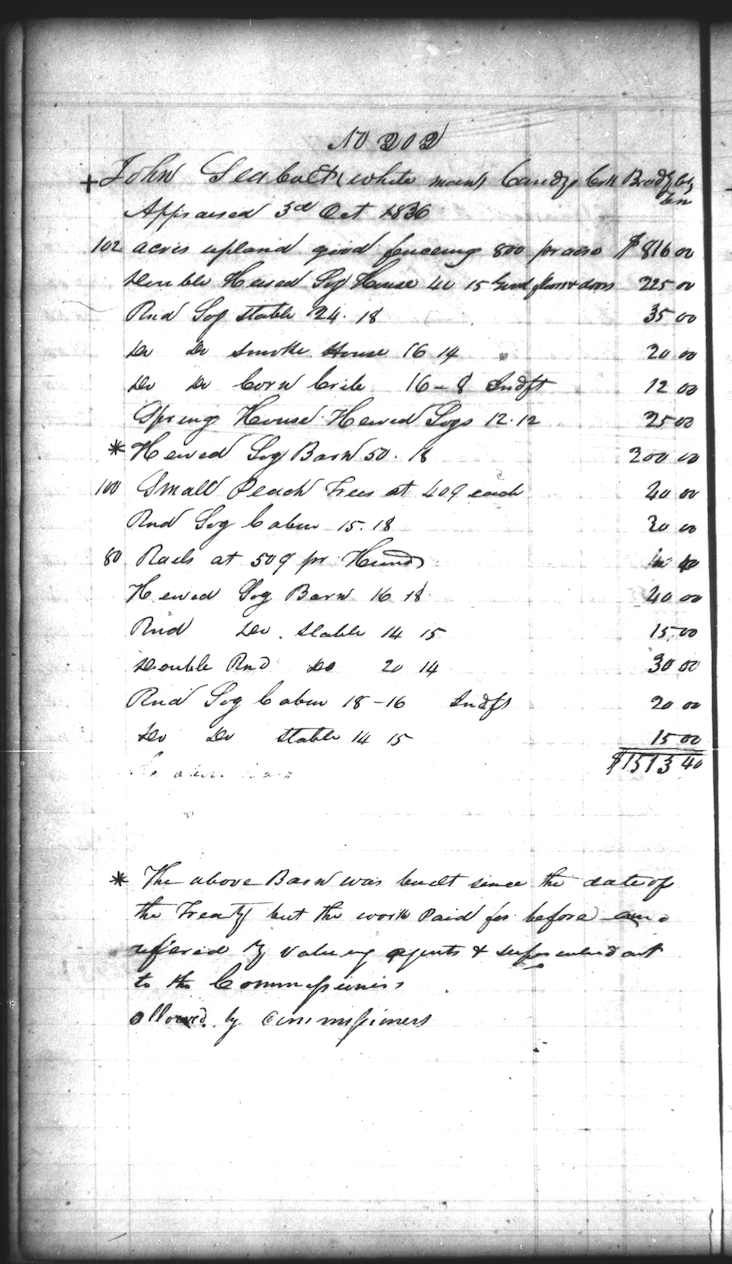 No 202
+ John Seabolt white man Candys Crk Brady Co
Ten
Appraised 3d Oct 1836
102 acres upland good fenceing 800 pr acre $816 00
Double Hewed Log House 40 15 Good floors & doors 225 00
Rnd Log Stable 24. 18 35 00
Do Do Smoke House 16 14 20 00
Do Do Corn Crib 16 - 8 Indft 12 00
Spring House Hewed Logs 12. 12 25 00
* Hewed Log Barn 50. 18 200 00
100 Small Peach Trees at 40¢ each 40 00
Rnd Log Cabin 15. 18 20 00
80 Rails at 50¢ pr Hund 40
Hewed Log Barn 16 18 40 00
Rnd Do. Stable 14 15 15 00
Double Rnd Do 20 14 30 00
Rnd Log Cabin 18 - 16 Indft 20 00
Do Do Stable 14 15 15 00
$1513 40
* The above Barn was built since the date of
the Treaty but the work Paid for before and
refered by valueing agents & superintendant
to the Commissioners
allowed by Commissioners